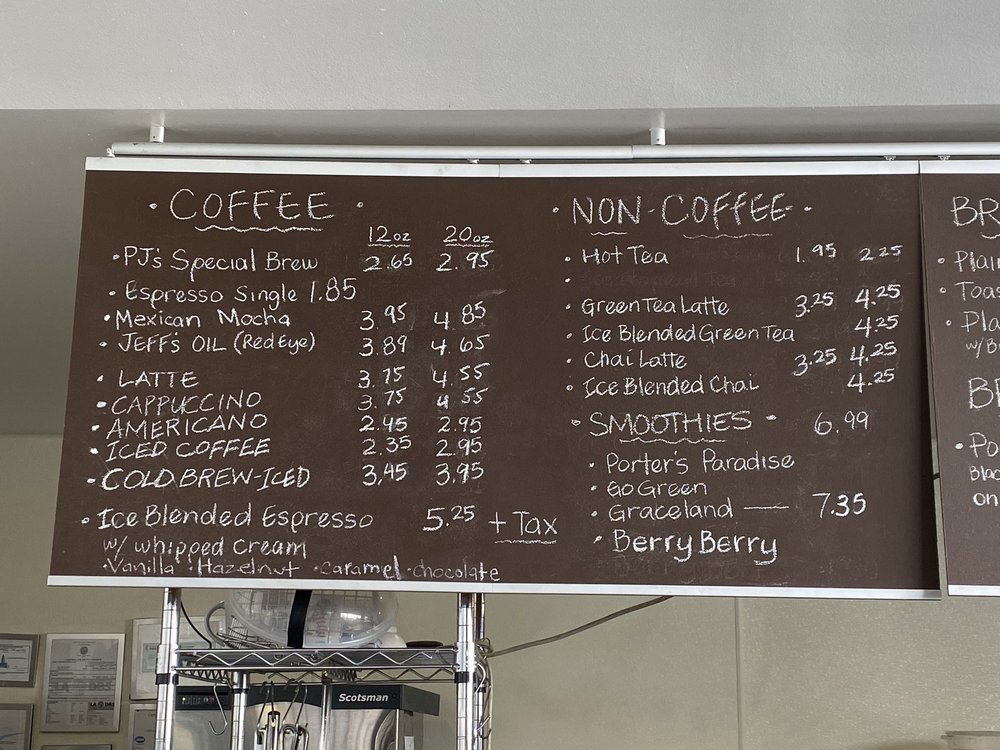 · COFFEE ·
12oz 20oz
· PJ's Special Brew 2.65 2.95
· Espresso Single 1.85
· Mexican Mocha 3.95 4.85
· JEFF's OIL (Red Eye) 3.89 4.65
· LATTE 3.75 4.55
· CAPPUCCINO 3.75 4.55
· AMERICANO 2.45 2.95
· ICED COFFEE 2.35 2.95
· COLD BREW-ICED 3.45 3.95
· Ice Blended Espresso 5.25 + Tax
w/ whipped Cream
· Vanilla · Hazelnut · caramel · chocolate
· NON-COFFEE ·
· Hot Tea 1.95 2.25
·
· Green Tea Latte 3.25 4.25
· Ice Blended Green Tea 4.25
· Chai Latte 3.25 4.25
· Ice Blended Chai 4.25
· SMOOTHIES · 6.99
· Porter's Paradise
· Go Green
· Graceland — 7.35
· Berry Berry
BR
· Plai
· Toas
· Pla
w/B
B
· Po
Blac
on
Scotsman